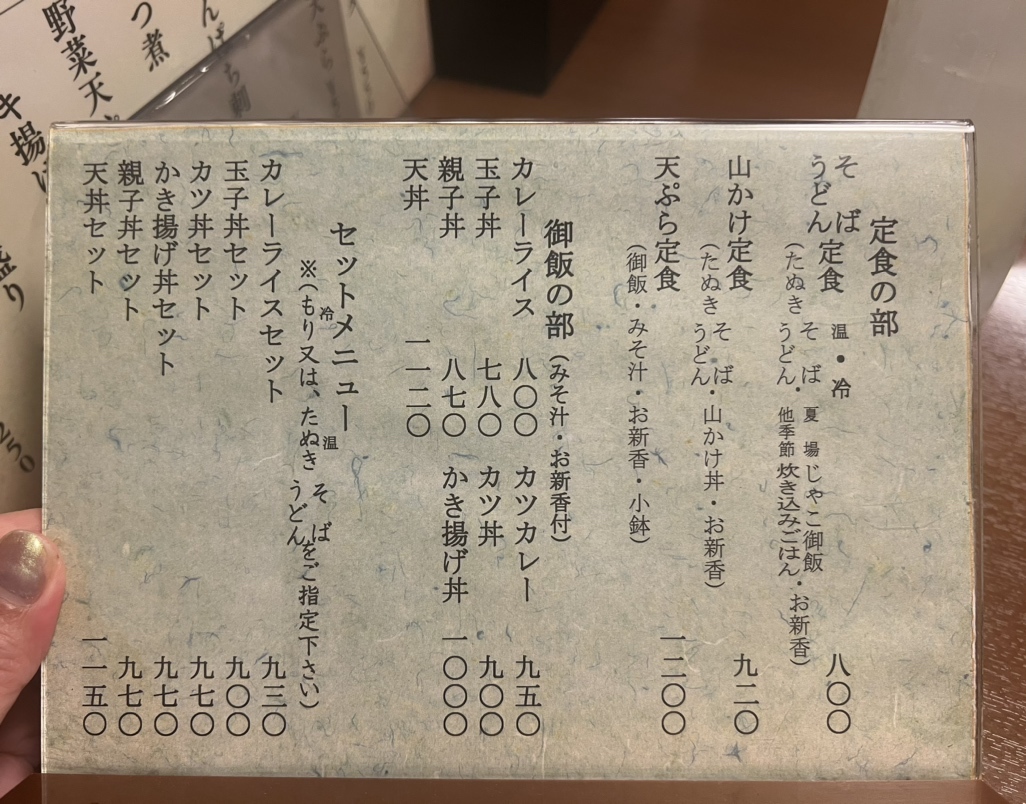 定食の部
そば
うどん
定食 温・冷 八〇〇
(たぬき そば うどん・夏場じゃこ御飯 他季節炊き込みごはん・お新香)
山かけ定食 九二〇
(たぬき そば うどん・山かけ丼・お新香)
天ぷら定食 一二〇〇
(御飯・みそ汁・お新香・小鉢)
御飯の部(みそ汁・お新香付)
カレーライス 八〇〇 カツカレー 九五〇
玉子丼 七八〇 カツ丼 九〇〇
親子丼 八七〇 かき揚げ丼 一〇〇〇
天丼 一一二〇
セットメニュー
※(もり冷又は、たぬき温 そば うどん をご指定下さい)
カレーライスセット 九三〇
玉子丼セット 九〇〇
カツ丼セット 九七〇
かき揚げ丼セット 九七〇
親子丼セット 九七〇
天丼セット 一一五〇
つ煮
野菜天ぷ